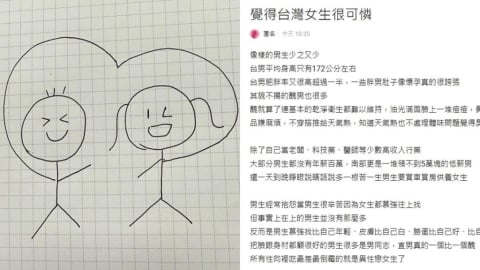 覺得台灣女生很可憐
匿名 · 今天 10:35
像樣的男生少之又少
台男平均身高只有172公分左右
台男肥胖率又很高超過一半,一些胖男肚子像懷孕真的很誇張
其貌不揚的醜男也很多
醜就算了連基本的乾淨衛生都難以維持,油光滿面臉上一堆痘痘,
品嫌麻煩,不穿搭推給天氣熱,知道天氣熱也不處理體味問題覺得
除了自己當老闆、科技業、醫師等少數高收入行業
大部分男生都沒有年薪百萬,南部更是一堆領不到5萬塊的低薪男
還一天到晚睜眼說瞎話說多一根苦一生男生要買車買房供養女生
男生經常抱怨當男生很辛苦因為女生都慕強往上找
但事實上在上的男生並沒有那麼多
反而是男生慕強找比自己年輕、皮膚比自己白、臉蛋比自己好、比
把臉跟身材都顧很好的男生很多是男同志,直男真的一個比一個醜
所有性向裡吃最差最倒霉的就是異性戀女生了